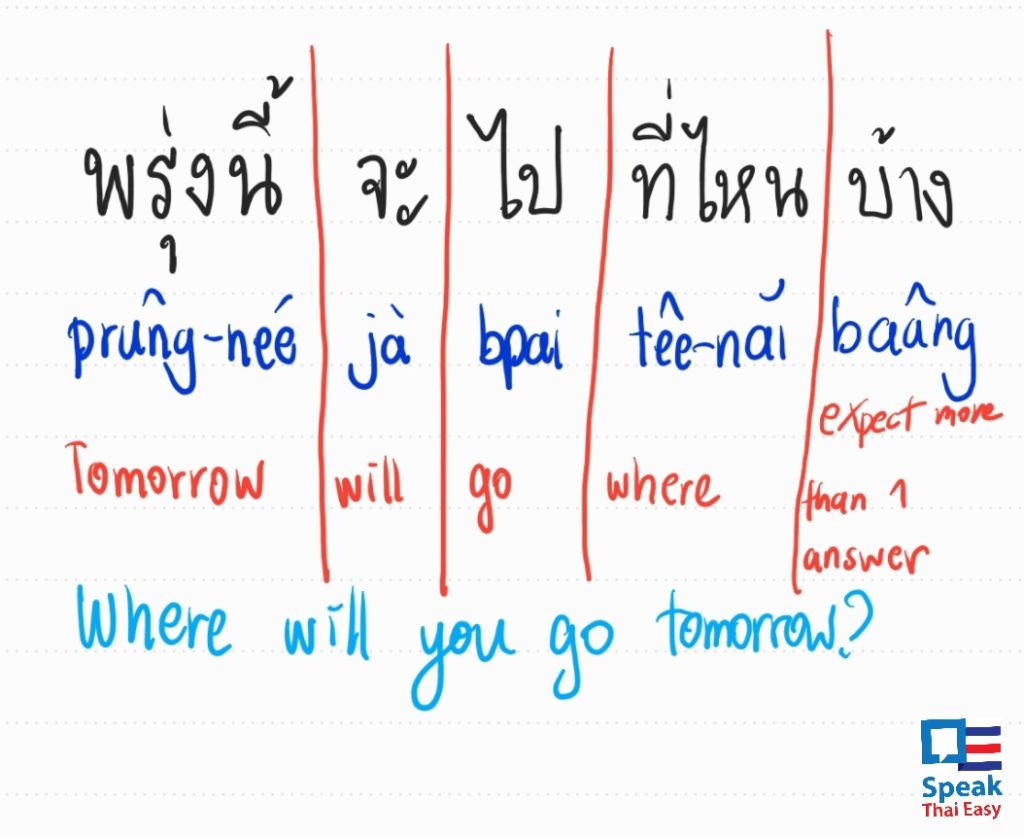 พรุ่งนี้ จะ ไป ที่ไหน บ้าง
prûng-neé jà bpai têe-nǎi baâng
expect more
Tomorrow will go where than 1
answer
Where will you go tomorrow?
Speak
Thai Easy